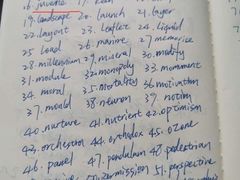 16 juvenile 17.
19. landscape 20. launch 21. layer
22. layout 23. leaflet 24. liquid
25 load 26. marine 27. memorise
28. millennium 29. mineral 30. modify
31. module 32. monopoly 33. monument
34 moral 35. mortality 36 motivation
37. mould 38 neuron 39. notion
40. nurture 41. nutrient 42. optimism
43. orchestra 44. orthodox 45. ozone
46. panel 47. pendulum 48. pedestrian
permission 51. perspective